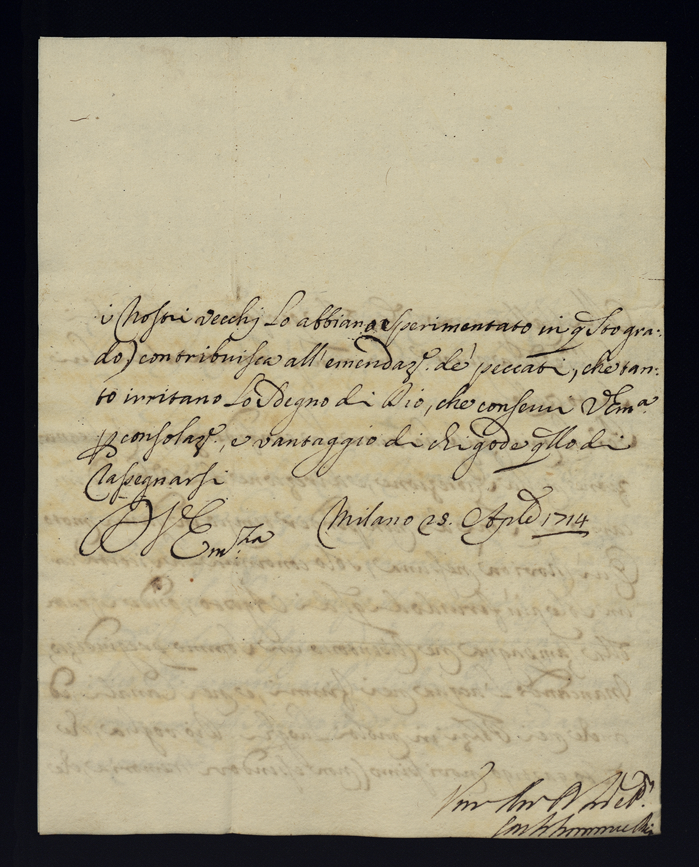 i Nostri vecchj Lo abbiano esperimentato in qsto gra-
do) contribuisca all'emendaz.e de' peccati, che tan-
to irritano Lo Sdegno di Dio, che conservi V. Em.a
p consolaz.e, e vantaggio di chi gode qllo di
rassegnarsi
Di V.a Em.za Milano 25. Aple 1714